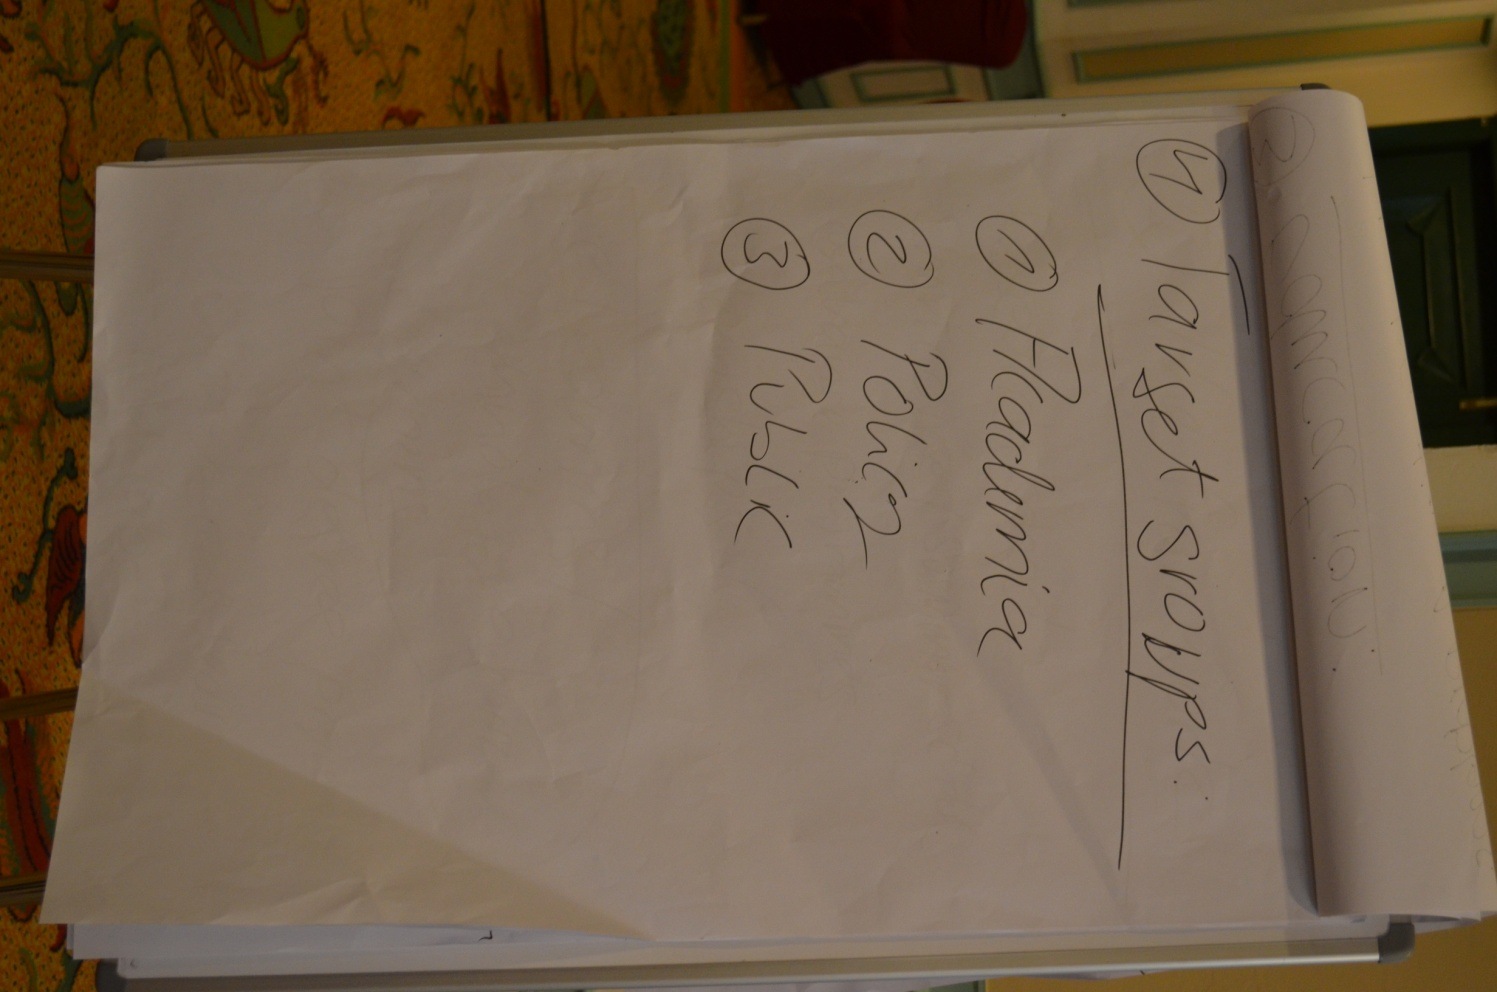 4) Target groups:
1 Academia
2 Policy
3 Public